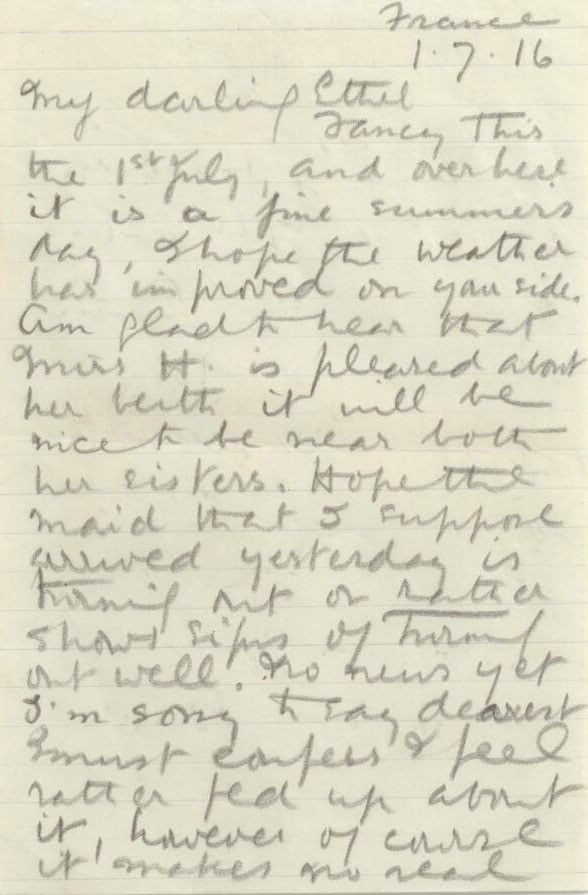 France
1.7.16
My darling Ethel
Fancy this
the 1st July, and over here
it is a fine summers
day, I hope the weather
has improved on your side.
Am glad to hear that
Miss H. is pleased about
her berth it will be
nice to be near both
her sisters. Hope the
maid that I suppose
arrived yesterday is
turning out or rather
shows signs of turning
out well. No news yet
I'm sorry to say dearest
I must confess I feel
rather fed up about
it, however of course
it makes no real